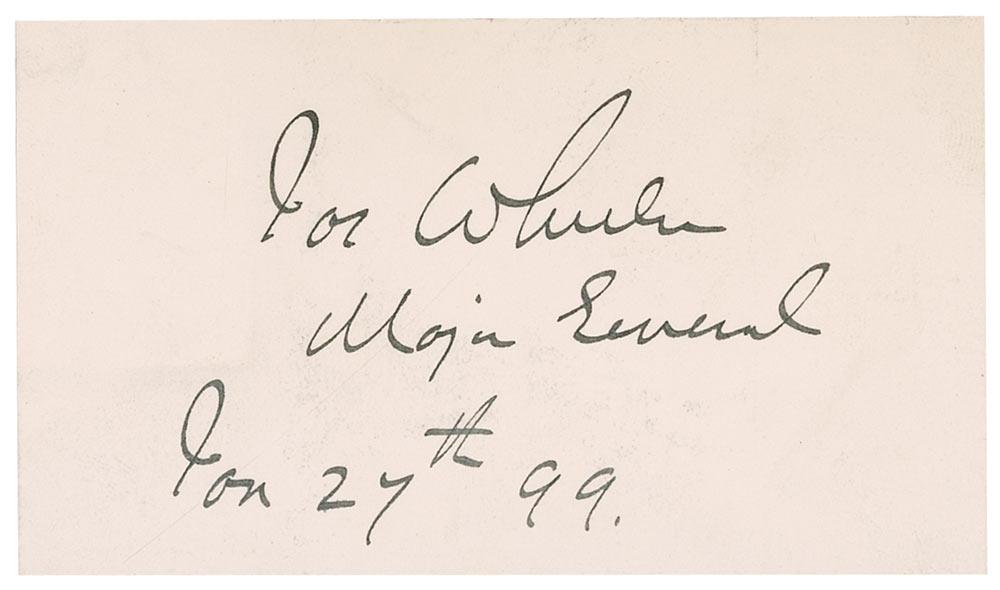 Jos Wheeler
Major General
Jan 27th 99.